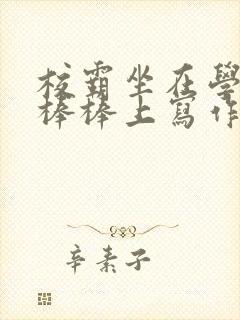 校霸坐在學
棒棒上寫作
辛素子